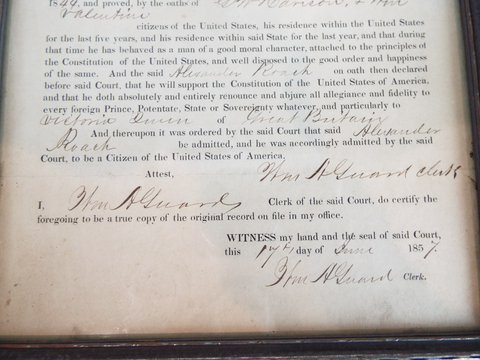 1844, and proved, by the oaths of & Wm
Valentine
citizens of the United States, his residence within the United States
for the last five years, and his residence within said State for the last year, and that during
that time he has behaved as a man of a good moral character, attached to the principles of
the Constitution of the United States, and well disposed to the good order and happiness
of the same. And the said Alexander Roach on oath then declared
before said Court, that he will support the Constitution of the United States of America.
and that he doth absolutely and entirely renounce and abjure all allegiance and fidelity to
every foreign Prince, Potentate, State or Sovereignty whatever, and particularly to
Victoria Queen of Great Britain
And thereupon it was ordered by the said Court that said Alexander
Roach be admitted, and he was accordingly admitted by the said
Court, to be a Citizen of the United States of America.
Attest, Wm H Guard clerk
I, Wm H Guard Clerk of the said Court, do certify the
foregoing to be a true copy of the original record on file in my office.
WITNESS my hand and the seal of said Court,
this 17th day of June 1857.
Wm H Guard Clerk.